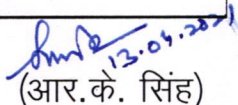 13.04.2021
(आर.के. सिंह)